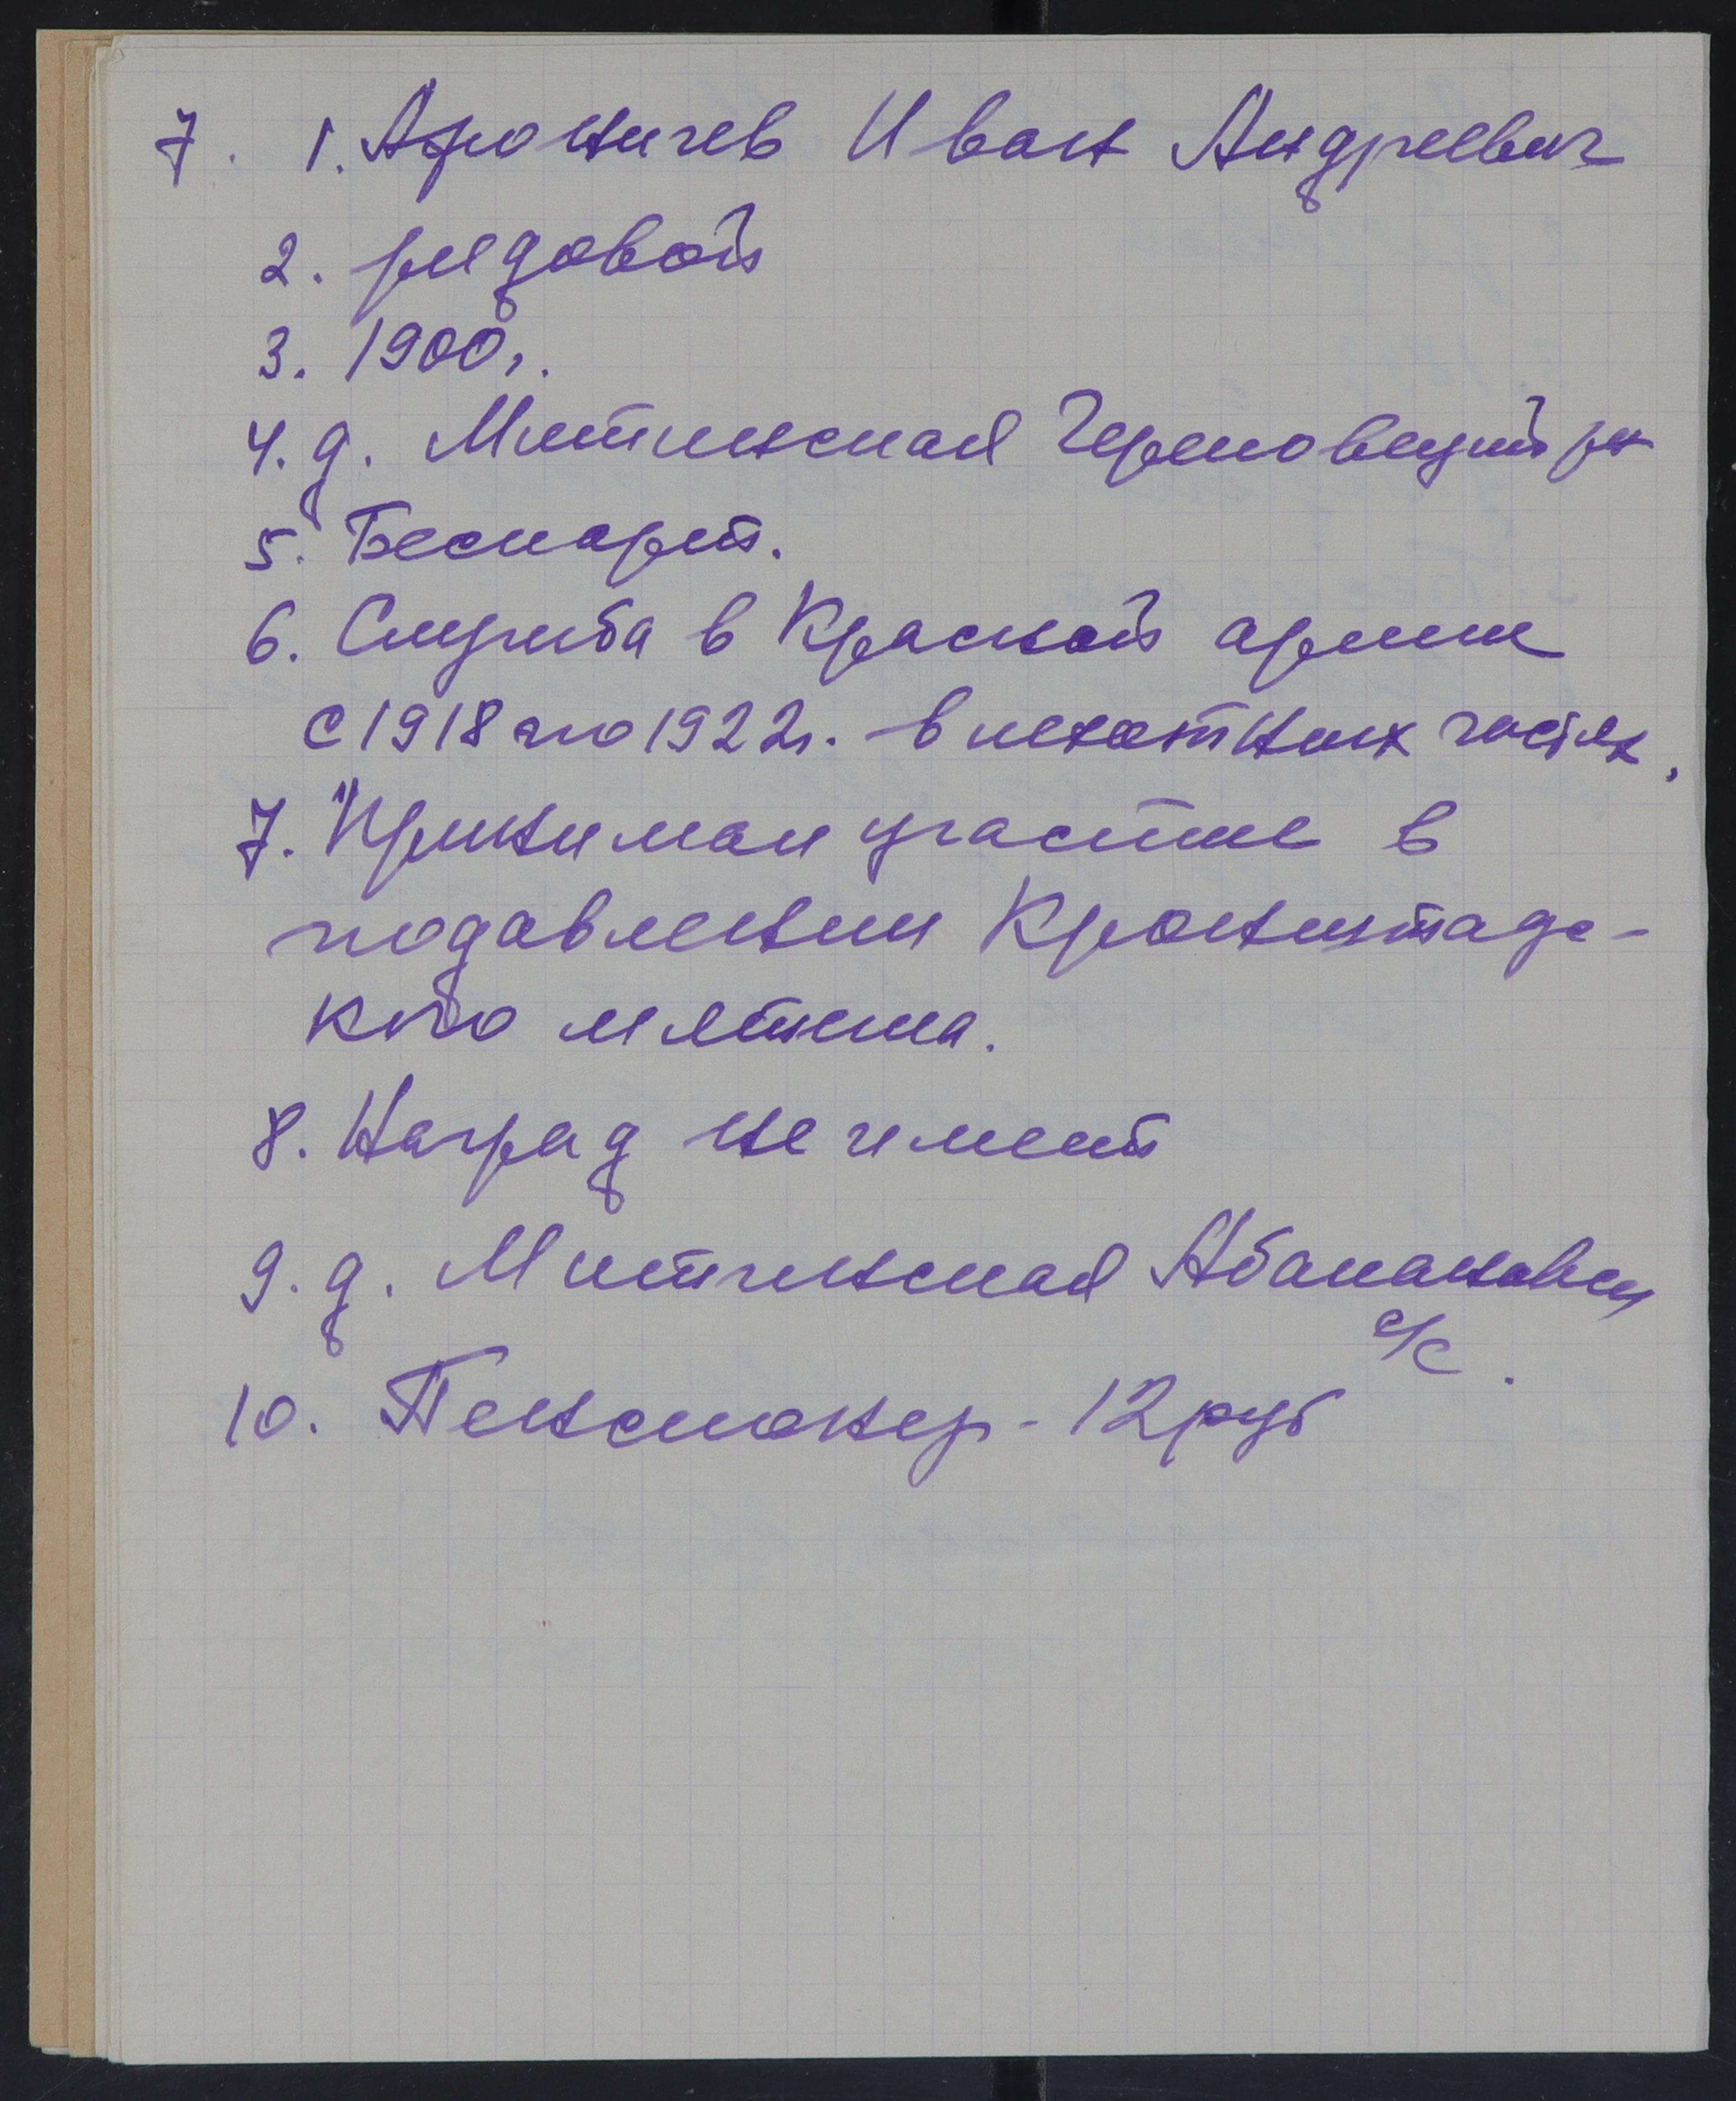 7. 1. Афоничев Иван Андреевич
2. рядовой
3. 1900г.
4. д. Митинская Череповецкий р-н
5. Беспарт.
6. Служба в Красной армии
с 1918 по 1922г. в пехотных частях.
7. Принимал участие в
подавлении Кронштадс-
кого мятежа.
8. Наград не имеет
9. д. Митинская Абакановск
с/с.
10. Пенсионер - 12 руб